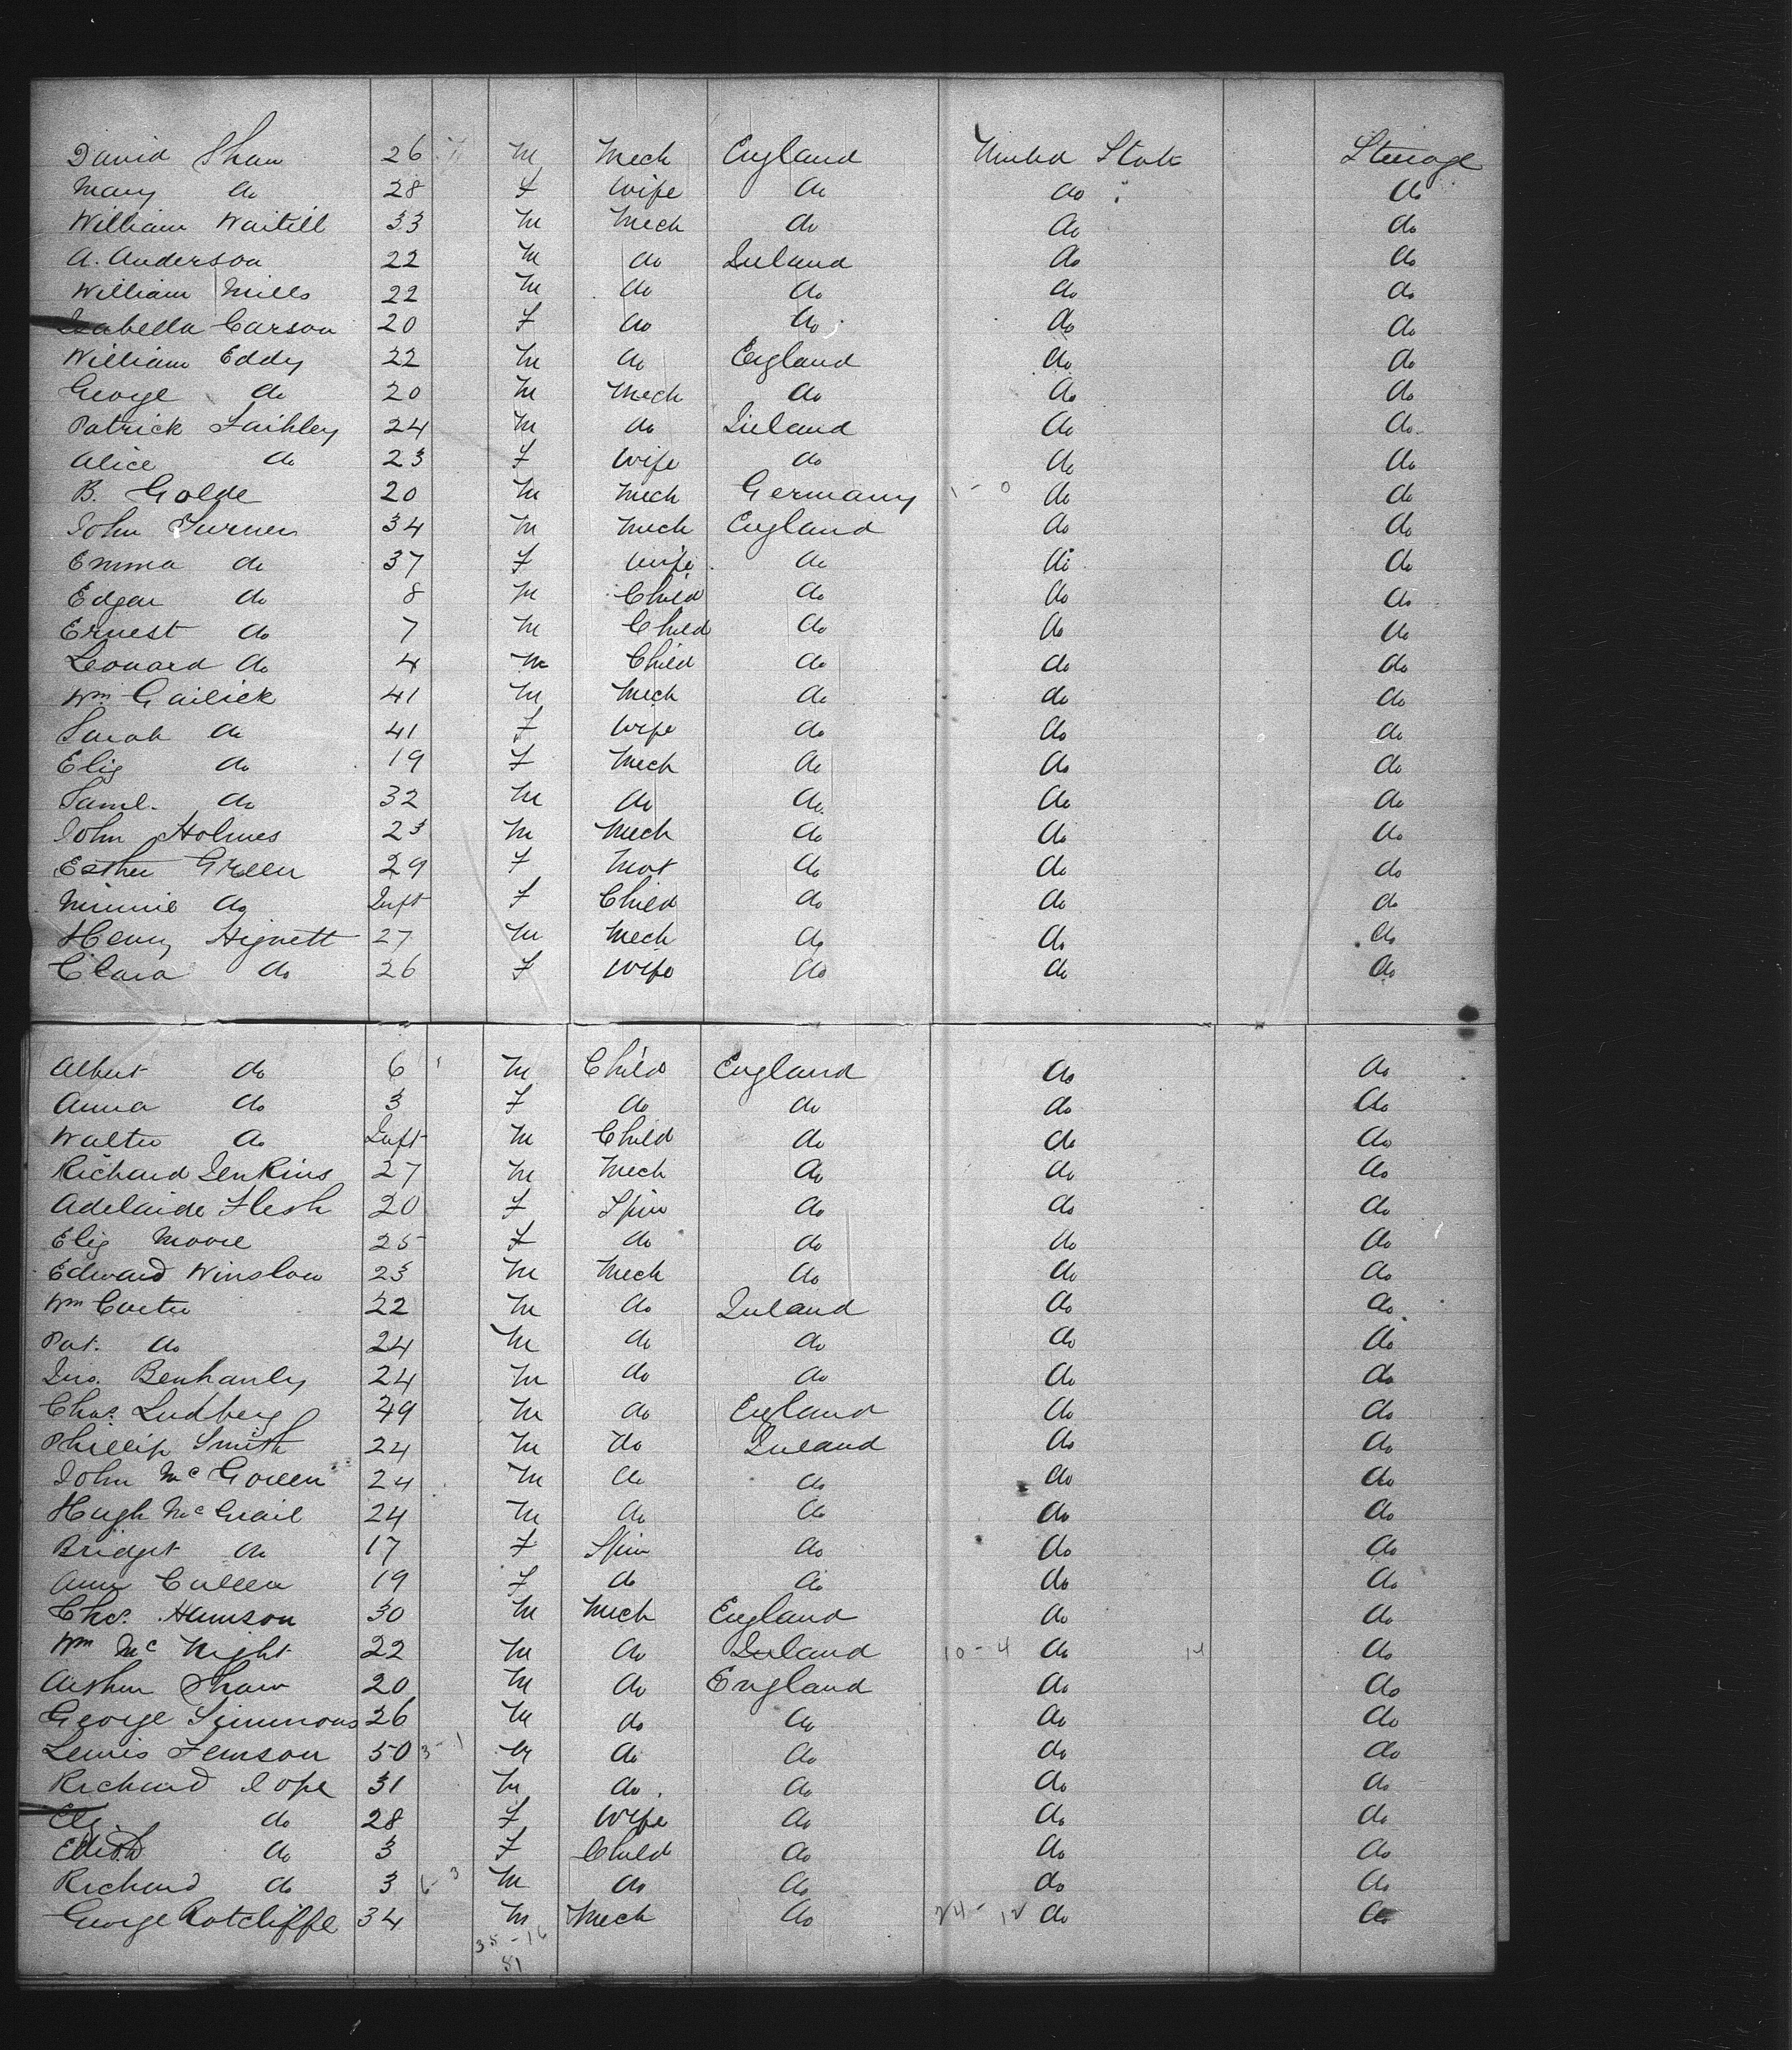 David Shaw 26 M Mech England United State Steerage
Mary do 28 F Wife do do do
William Waitill 33 M Mech do do do
A. Anderson 22 M do Ireland do do
William Mills 22 M do do do do
Isabella Carson 20 F do do do do
William Eddy 22 M do England do do
George do 20 M Mech do do do
Patrick Faihley 24 M do Ireland do do
Alice do 23 F Wife do do do
B. Golde 20 M Mech Germany 1-0 do do
John Turner 34 M Mech England do do
Emma do 37 F Wife do do do
Edgar do 8 M Child do do do
Ernest do 7 M Child do do do
Leonard do 4 M Child do do do
Wm Gailick 41 M Mech do do do
Sarah do 41 F Wife do do do
Eliz do 19 F Mech do do do
Saml. do 32 M do do do do
John Holmes 23 M Mech do do do
Esther Green 29 F Mot do do do
Minnie do Inft F Child do do do
Henry Hignett 27 M Mech do do do
Clara do 26 F Wife do do do
Albert do 6 M Child England do do
Anna do 3 F do do do do
Walter do Inft M Child do do do
Richard Jenkins 27 M Mech do do do
Adelaide Flesh 20 F Spin do do do
Eliz Moore 25 F do do do do
Edward Winslow 23 M Mech do do do
Wm Carter 22 M do Ireland do do
Pat. do 24 M do do do do
Jno. Benhanly 24 M do do do do
Chas. Ludberg 49 M do England do do
Phillip Smith 24 M do Ireland do do
John McGoreen 24 M do do do do
Hugh McGrail 24 M do do do do
Bridget do 17 F Spin do do do
Ann Cullen 19 F do do do do
Chs. Hamson 30 M Mech England do do
Wm McNight 22 M do Ireland 10-4 do 14 do
Arthur Shaw 20 M do England do do
George Simmons 26 M do do do do
Lewis Femson 50 3-1 M do do do do
Richard Jope 31 M do do do do
Elz. do 28 F Wife do do do
Edith do 3 F Child do do do
Richard do 3 6-3 M do do do do
George Ratcliffe 34 M Mech do 24-12 do do
35-16
51